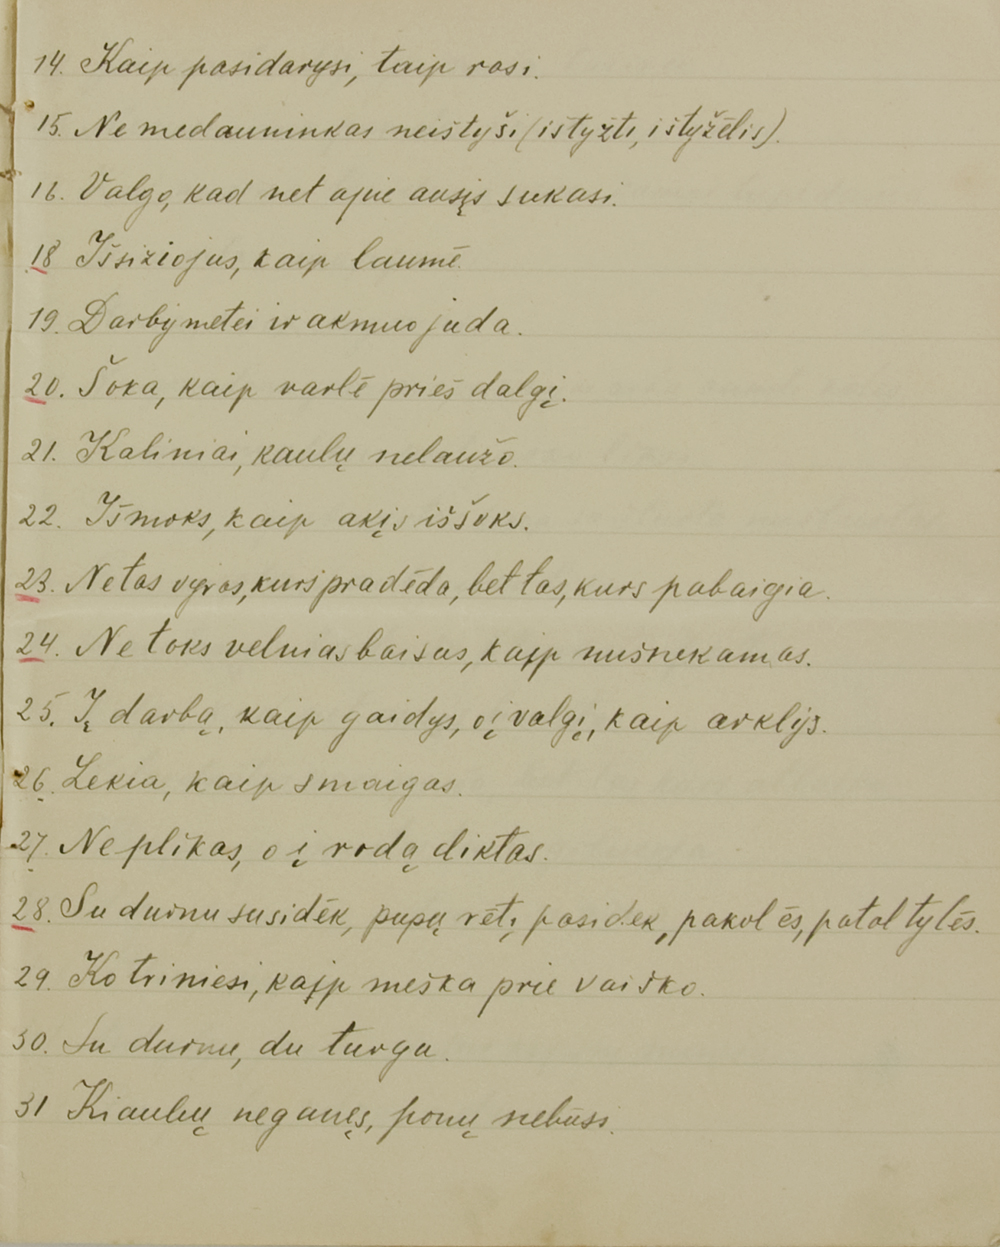 14. Kaip pasidarysi, taip rasi.
15. Ne medauninkas neištyši (ištyžti, ištyžėlis).
16. Valgo, kad net apie ausįs sukasi.
18 Išsižiojus, kaip laumė.
19. Darbymetei ir akmuo juda.
20. Šoka, kaip varlė prieš dalgį.
21. Kaliniai, kaulų nelaužo.
22. Išmoks, kaip akįs iššoks.
23. Ne tas vyras, kurs pradėda, bet tas, kurs pabaigia.
24. Ne toks velnias baisus, kaip nušnekamas.
25. Į darbą, kaip gaidys, o į valgį, kaip arklys.
26. Lekia, kaip smaigas.
27. Ne plikas, o į rodą diktas.
28. Su durnu susidėk, pupų rėtį pasidek, pakol ės, patol tylės.
29. Ko triniesi, kaip meška prie vaiško.
30. Su durnu, du turgu.
31 Kiaulių neganęs, ponų nebūsi.